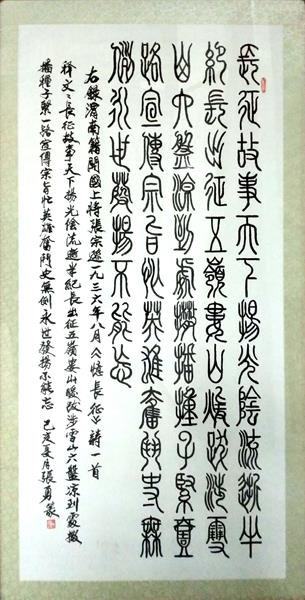 長征故事天下揚光陰流逝半
紀長出征五嶺婁山暖跋涉雪
山六盤涼到處撒播種子緊壹
路宣傳宗旨壯英雄奮鬥史無
例永世發揚不能忘
右錄渭南籍開國上將張宗遜一九三六年八月《憶長征》詩一首
釋文：長征故事天下揚光陰流逝半紀長出征五嶺婁山暖跋涉雪山六盤涼到處撒
播種子緊一路宣傳宗旨壯英雄奮鬥史無例永世發揚不能忘 己亥夏月張勇篆